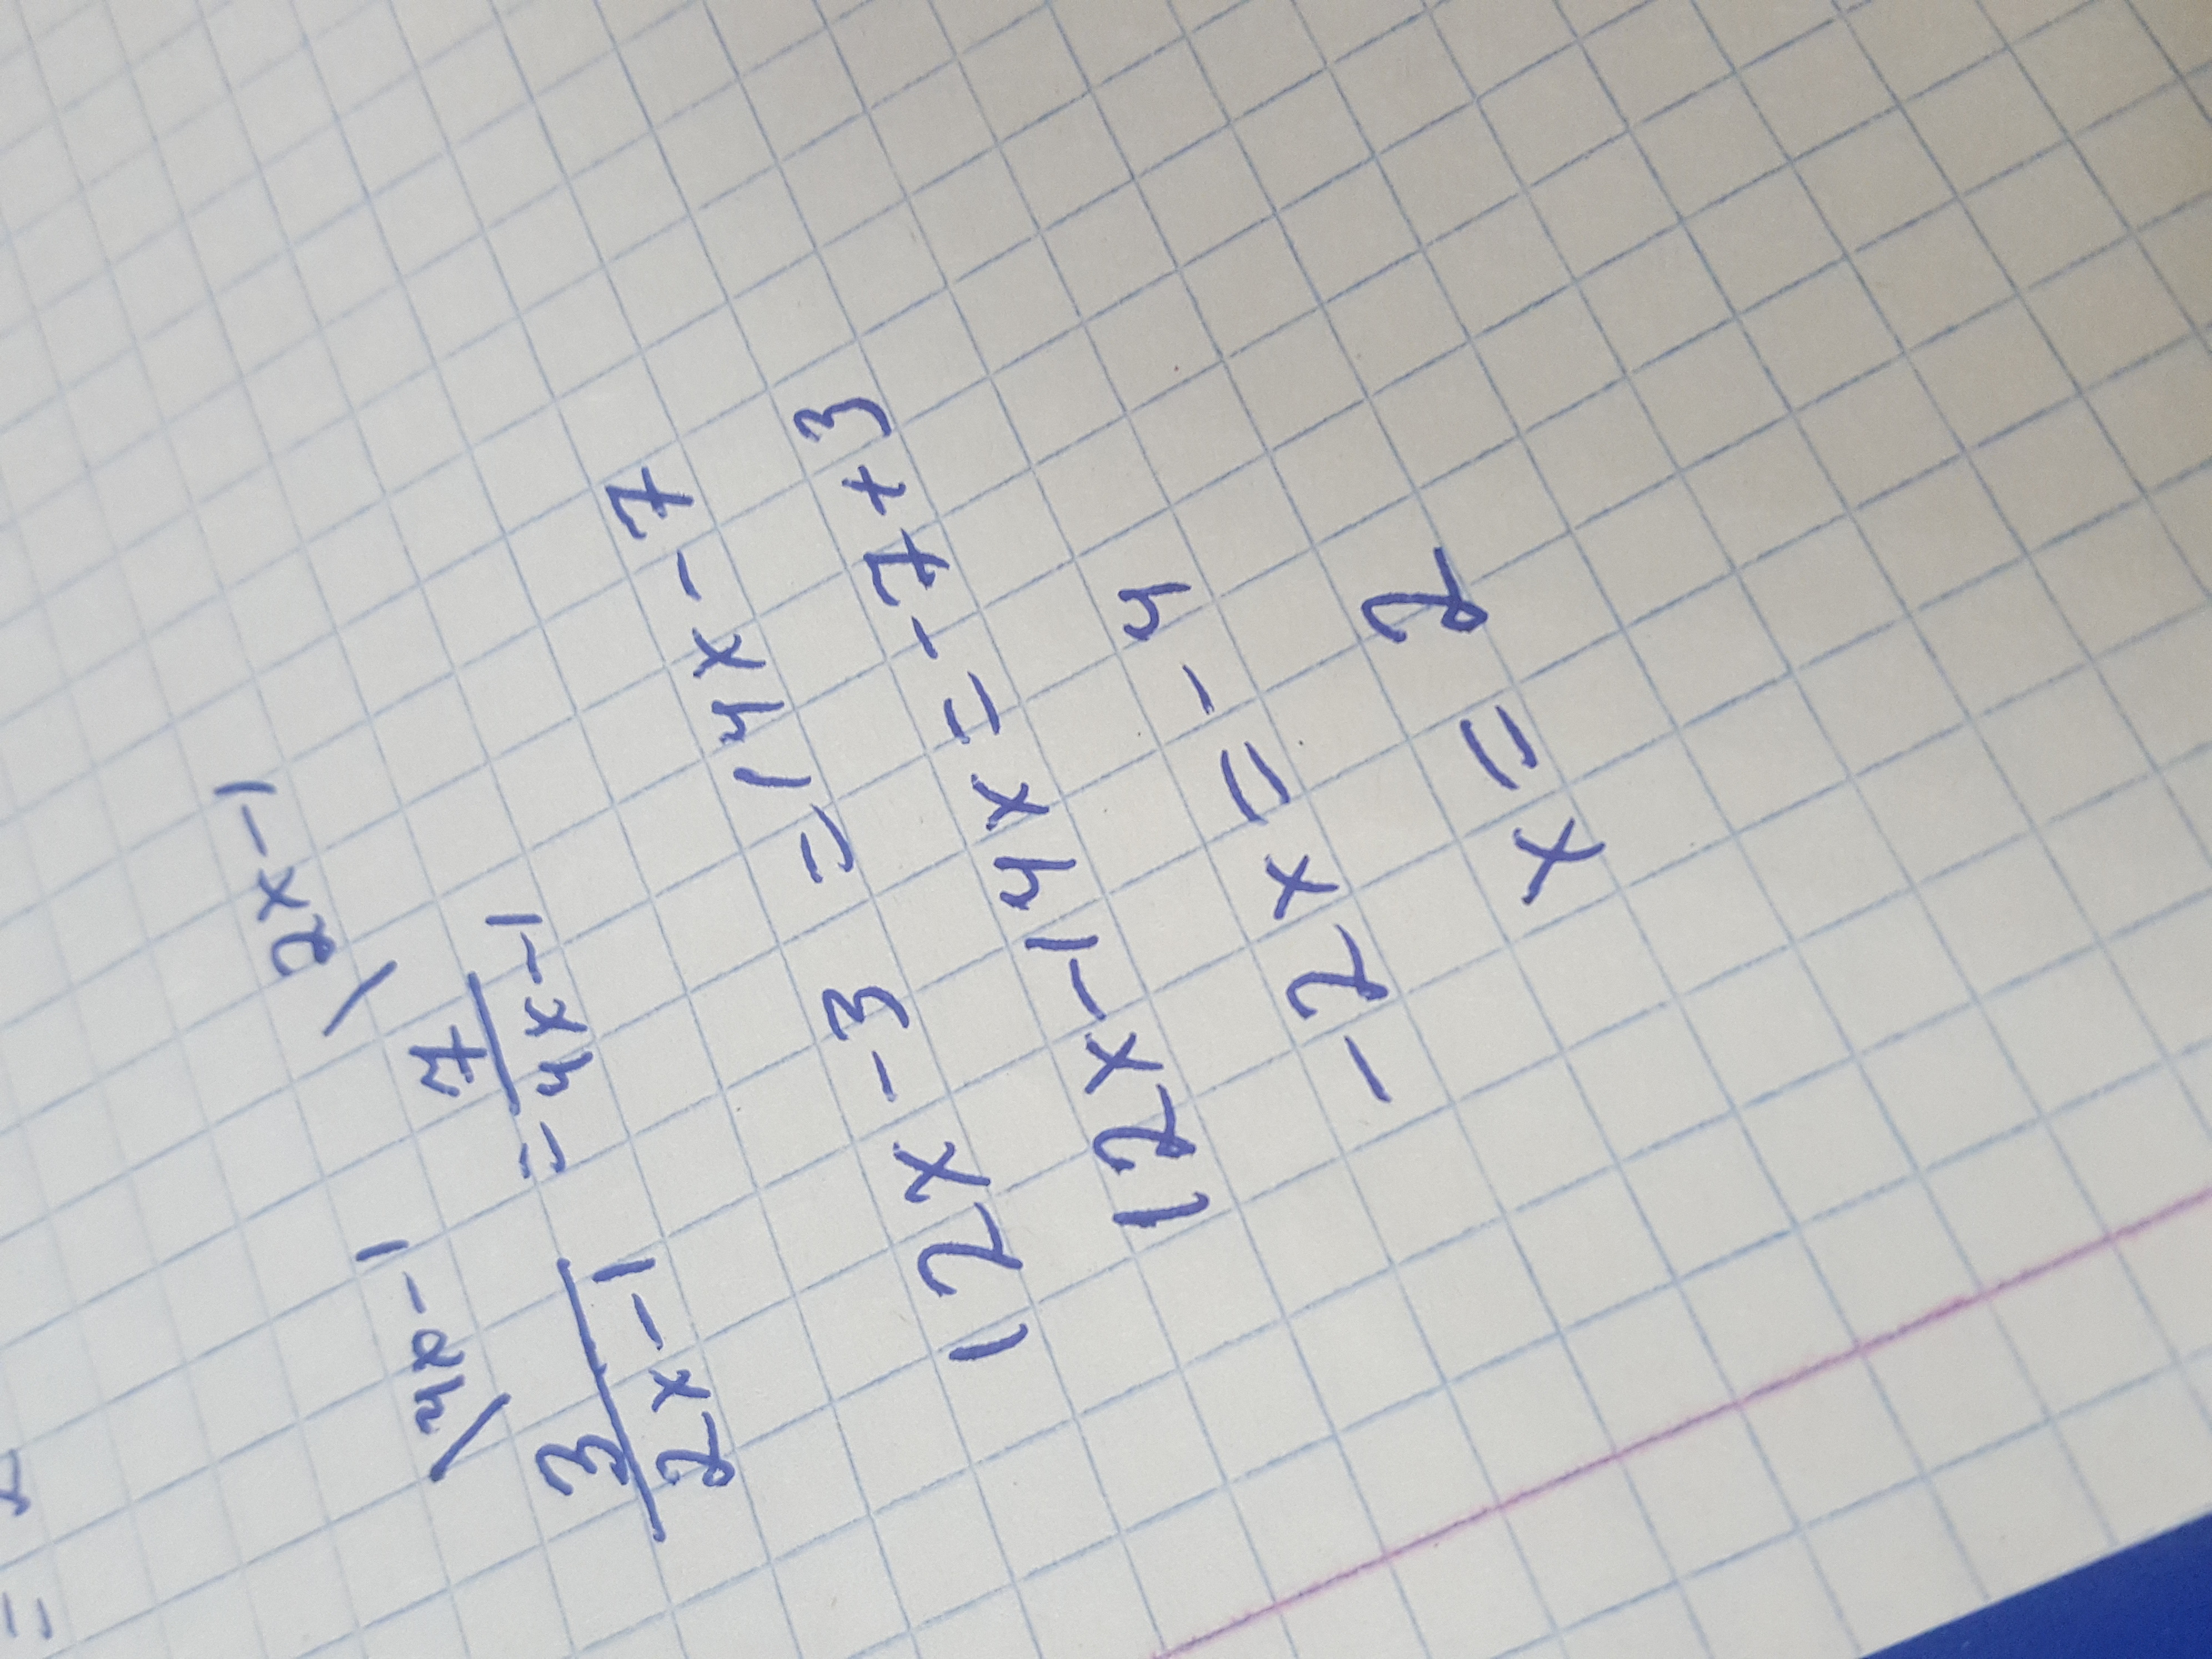 \4x-1 \2x-1
3/(2x-1) = 7/(4x-1)
12x - 3 = 14x - 7
12x-14x = -7+3
-2x = -4
x = 2